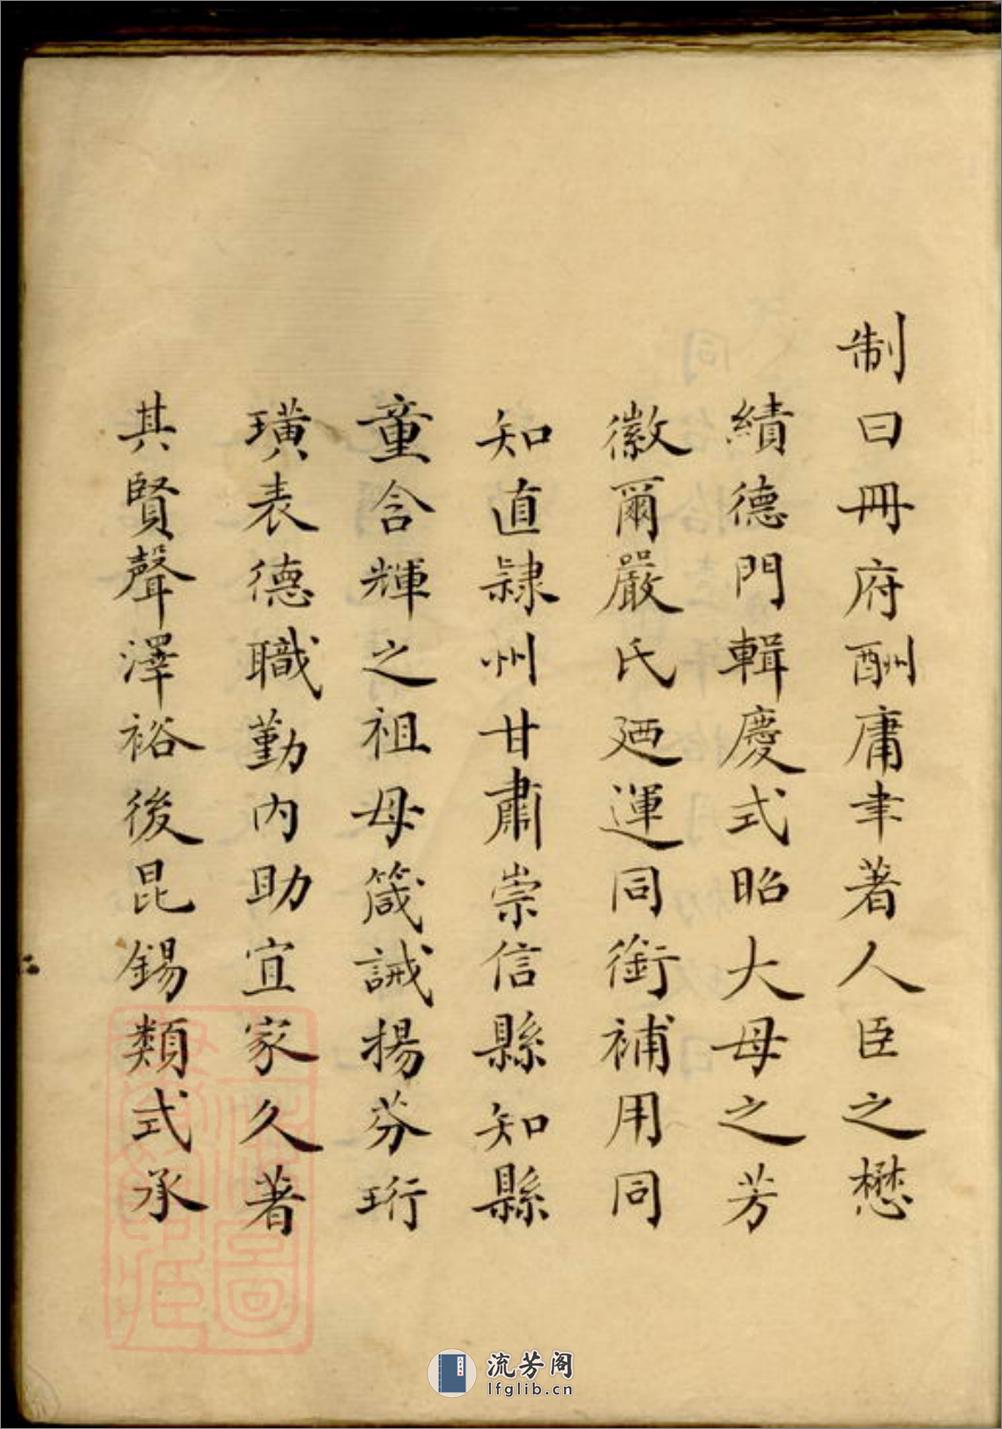 制曰冊府酬庸聿著人臣之懋
績德門輯慶式昭大母之芳
徽爾嚴氏廼運同銜補用同
知直隸州甘肅崇信縣知縣
童含輝之祖母箴誡揚芬珩
璜表德職勤內助宜家久著
其賢聲澤裕後昆錫類式承
流芳阁
lfglib.cn